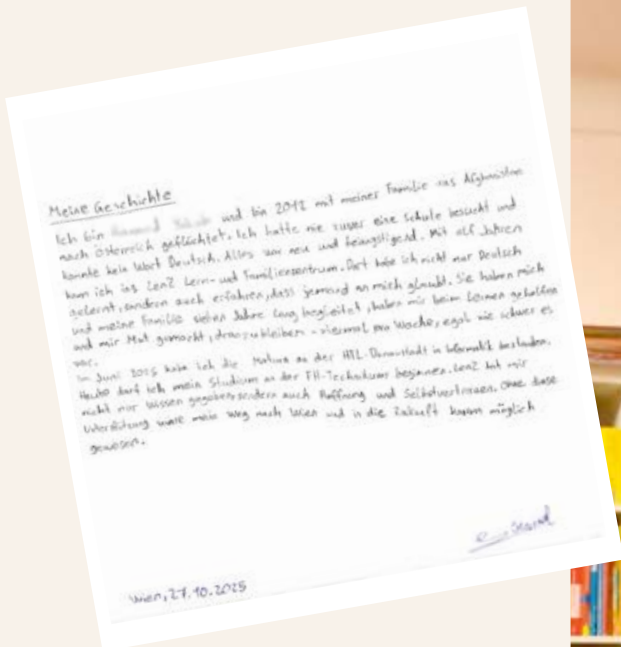 Meine Geschichte
Ich bin und bin 2012 mit meiner Familie aus Afghanistan
nach Österreich geflüchtet. Ich hatte nie zuvor eine Schule besucht und
konnte kein Wort Deutsch. Alles war neu und beängstigend. Mit elf Jahren
kam ich ins LenZ Lern- und Familienzentrum. Dort habe ich nicht nur Deutsch
gelernt, sondern auch erfahren, dass jemand an mich glaubt. Sie haben mich
und meine Familie sieben Jahre lang begleitet, haben mir beim Lernen geholfen
und mir Mut gemacht, dranzubleiben - viermal pro Woche, egal wie schwer es
war.
Im Juni 2025 habe ich die Matura an der HTL-Donaustadt in Informatik bestanden.
Heute darf ich mein Studium an der FH-Technikum beginnen. LenZ hat mir
nicht nur Wissen gegeben, sondern auch Hoffnung und Selbstvertrauen. Ohne diese
Unterstützung wäre mein Weg nach Wien und in die Zukunft kaum möglich
gewesen.
Wien, 27.10.2025